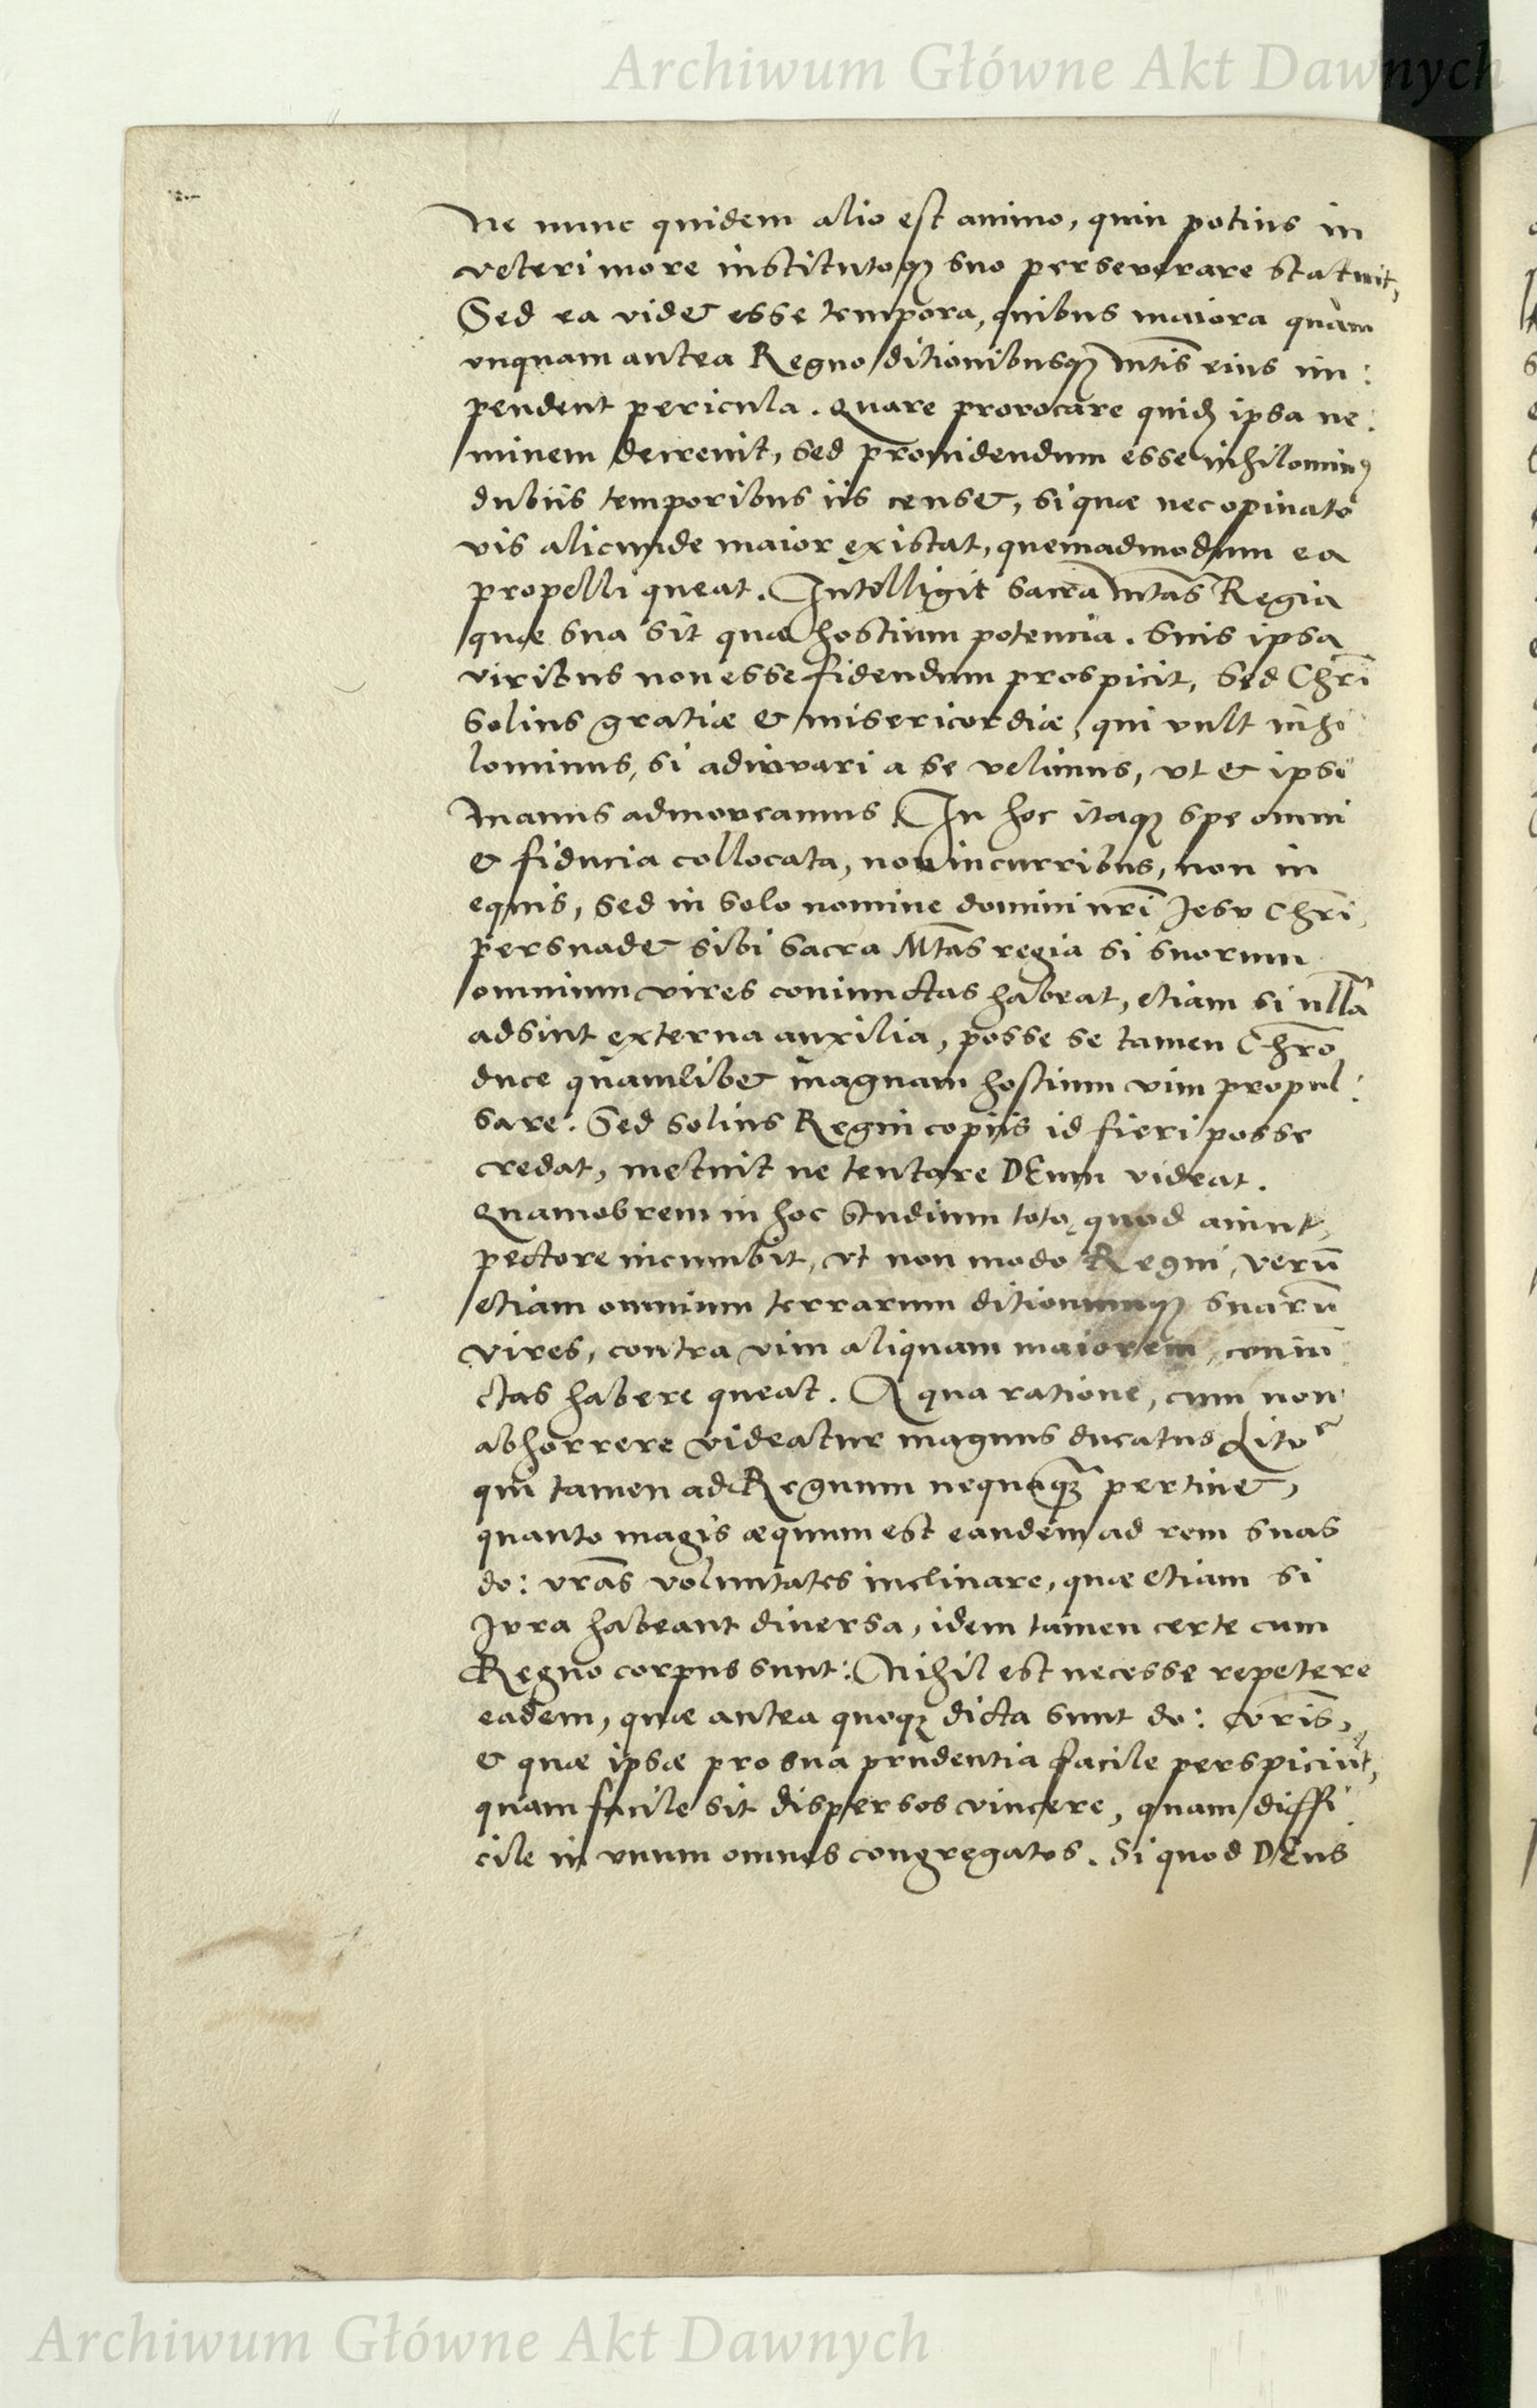 Archiwum Główne Akt Dawnych
Ne nunc quidem alio est animo, quin potius in
veteri more institutoq3 suo perseverare statuit,
Sed ea videt esse tempora, quibus maiora quàm
unquam antea Regno ditionibusq3 Mtis eius im:
pendent pericula. Quare provocare quidē ipsa ne:
minem decrevit, sed providendum esse nihilomin9
dubiis temporibus iis censet, si quæ nec opinato
vis alicunde maior existat, quemadmodum ea
propelli queat. Intelligit Sacra Mtas Regia
quæ sua sit quæ hostium potencia. Suis ipsa
viribus non esse fidendum prospicit, sed Chri
solius gratiæ & misericordiæ, qui vult nihi
lominus, si adiuvari a se velimus, ut & ipsi
manus admoveamus. In hoc itaq3 spe omni
& fiducia collocata, non in curribus, non in
equis, sed in solo nomine domini nri Jesv Chri,
persuadet sibi Sacra Mtas regia si suorum
omnium vires coniunctas habeat, etiam si nlla
adsint externa auxilia, posse se tamen Chro
duce quamlibet magnam hostium vim propul:
sare. Sed solius Regni copiis id fieri posse
credat, metuit ne tentare DEum videat.
Quamobrem in hoc studium toto, quod aiunt,
pectore incumbit, vt non modo Regni, verū
etiam omnium terrarum ditionumq3 suarū
vires, contra vim aliquam maiorem, coniū
ctas habere queat. A qua ratione, cum non
abhorrere videatur magnus ducatus Litvæ
qui tamen ad Regnum nequaq3 pertinet,
quanto magis æquum est eandem ad rem suas
do: vras voluntates inclinare, quæ etiam si
Jvra habeant diversa, idem tamen certe cum
Regno corpus sunt: Nihil est necesse repetere
eadem, quæ antea quoq3 dicta sunt do: vris,
& quæ ipsæ pro sua prudentia facile perspiciūt,
quam facile sit dispersos vincere, quam diffi
cile in unum omnes congregatos. Si quod DEus
Archiwum Główne Akt Dawnych